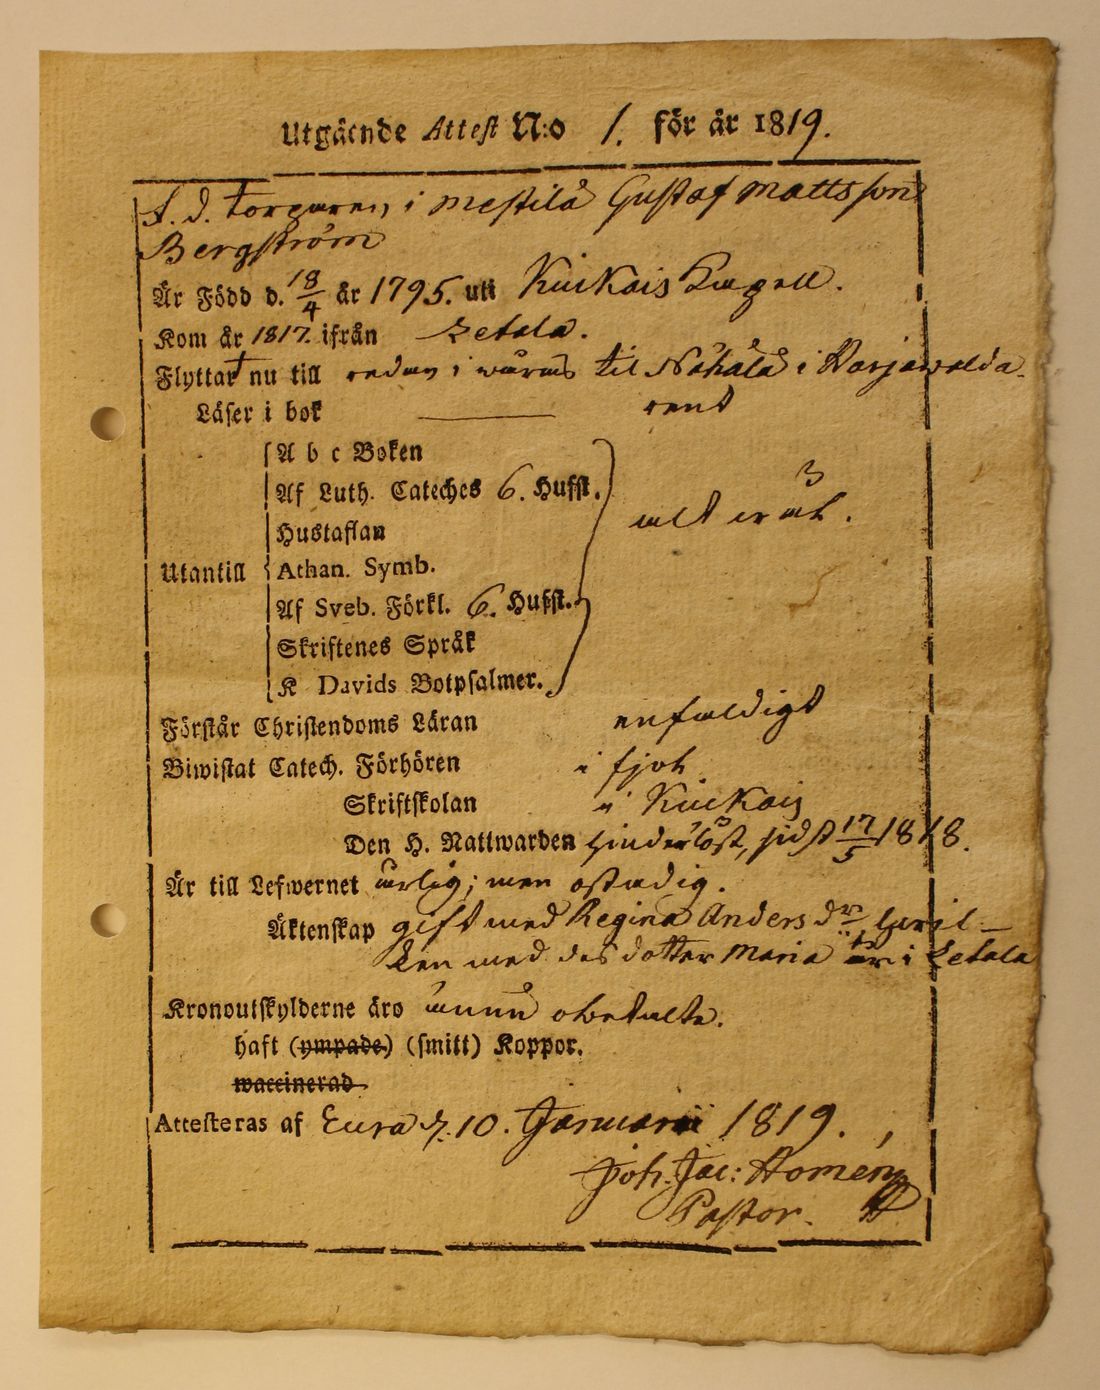 Utgående Attest N:o 1. för år 1819.
f. d. torparen i Mestilä Gustaf Mattsson
Bergström
Är Född d. 18/4 år 1795. uti Kiukais Capell.
Kom år 1817. ifrån Letala.
Flyttat nu till redan i wåras til Nähälä i Harjawalda.
Läser i bok rent
A b c Boken
Af Luth. Cateches 6. Hufst.
Hustaflan
Utantill Athan. Symb.
Af Sveb. Förkl. 6. Hufst.
Skriftenes Språk
K Davids Botpsalmer.
Förstår Christendoms Läran enfaldigt
Biwistat Catech. Förhören i fjol
Skriftskolan i Kiukais
Den H. Nattwarden hinderlöst, sidst 17/5 1818.
Är till Lefwernet ärlig; men ostadig.
Äktenskap gift med Regina Anders dr,
med des dotter Maria är i Letala
Kronoutskylderne äro ännu obetalte.
haft (ympade) (smitt) Koppor.
waccinerad
Attesteras af Eura d. 10. Januarii 1819.
Joh. Jac: Homén
Pastor.